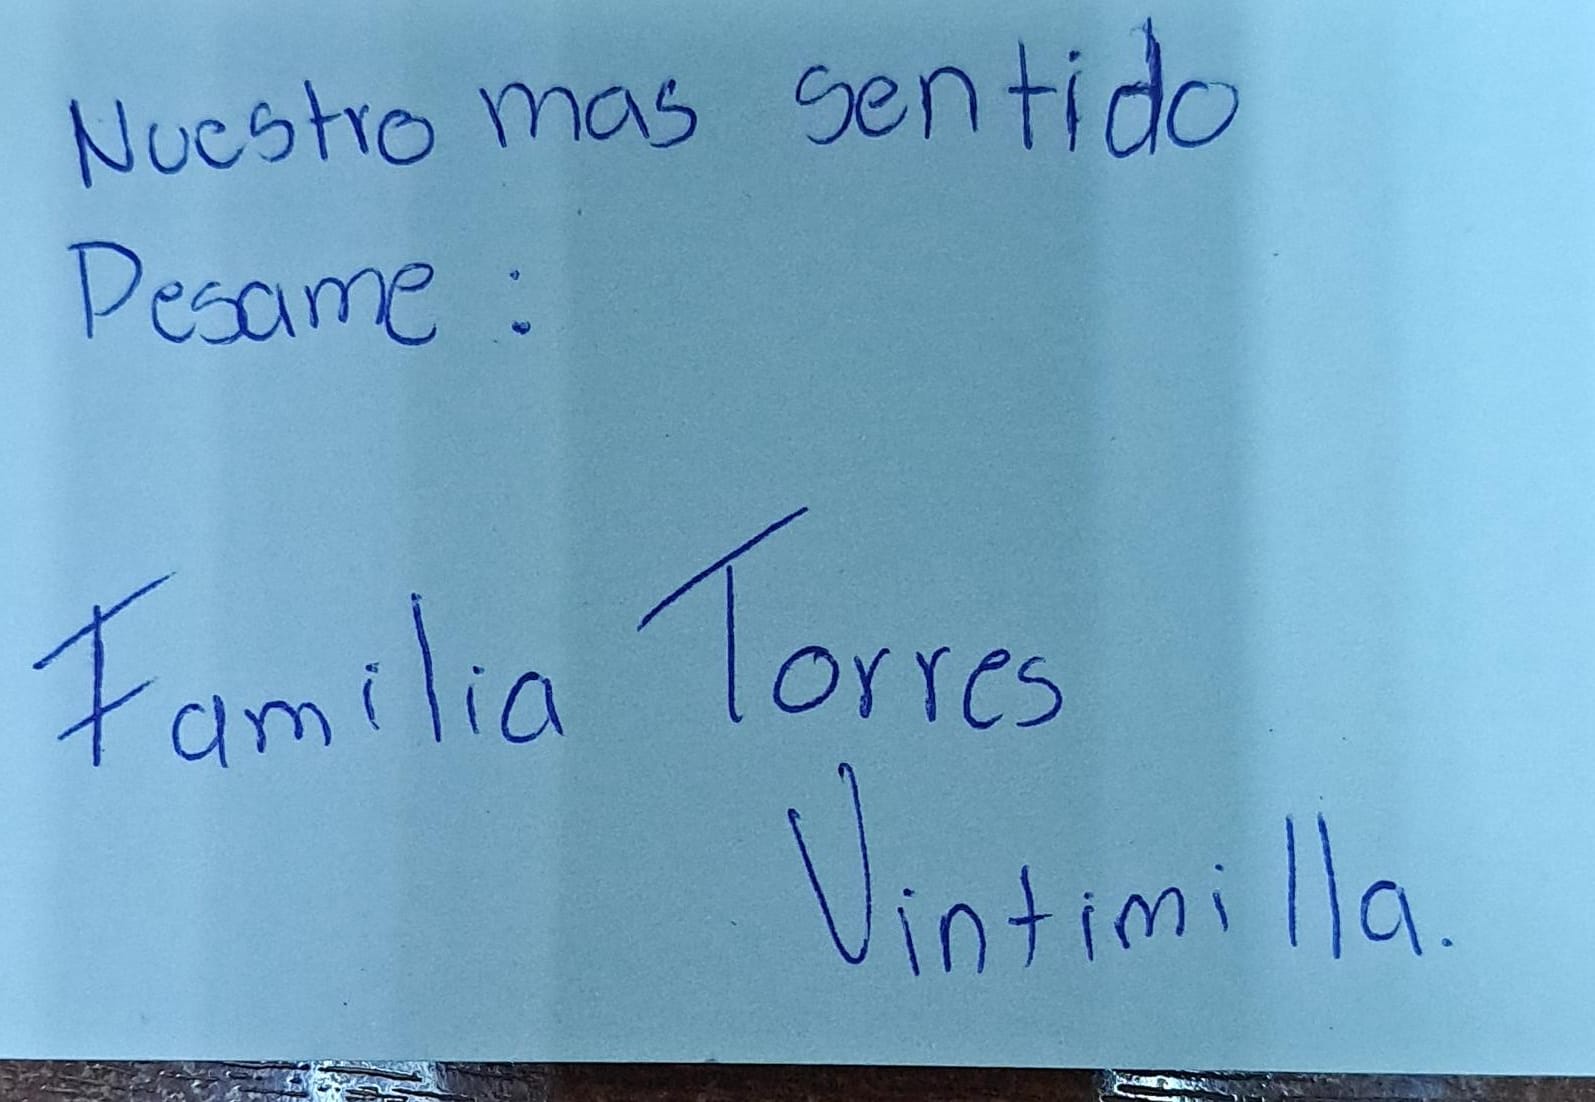 Nuestro mas sentido
Pesame :
Familia Torres
Vintimilla.